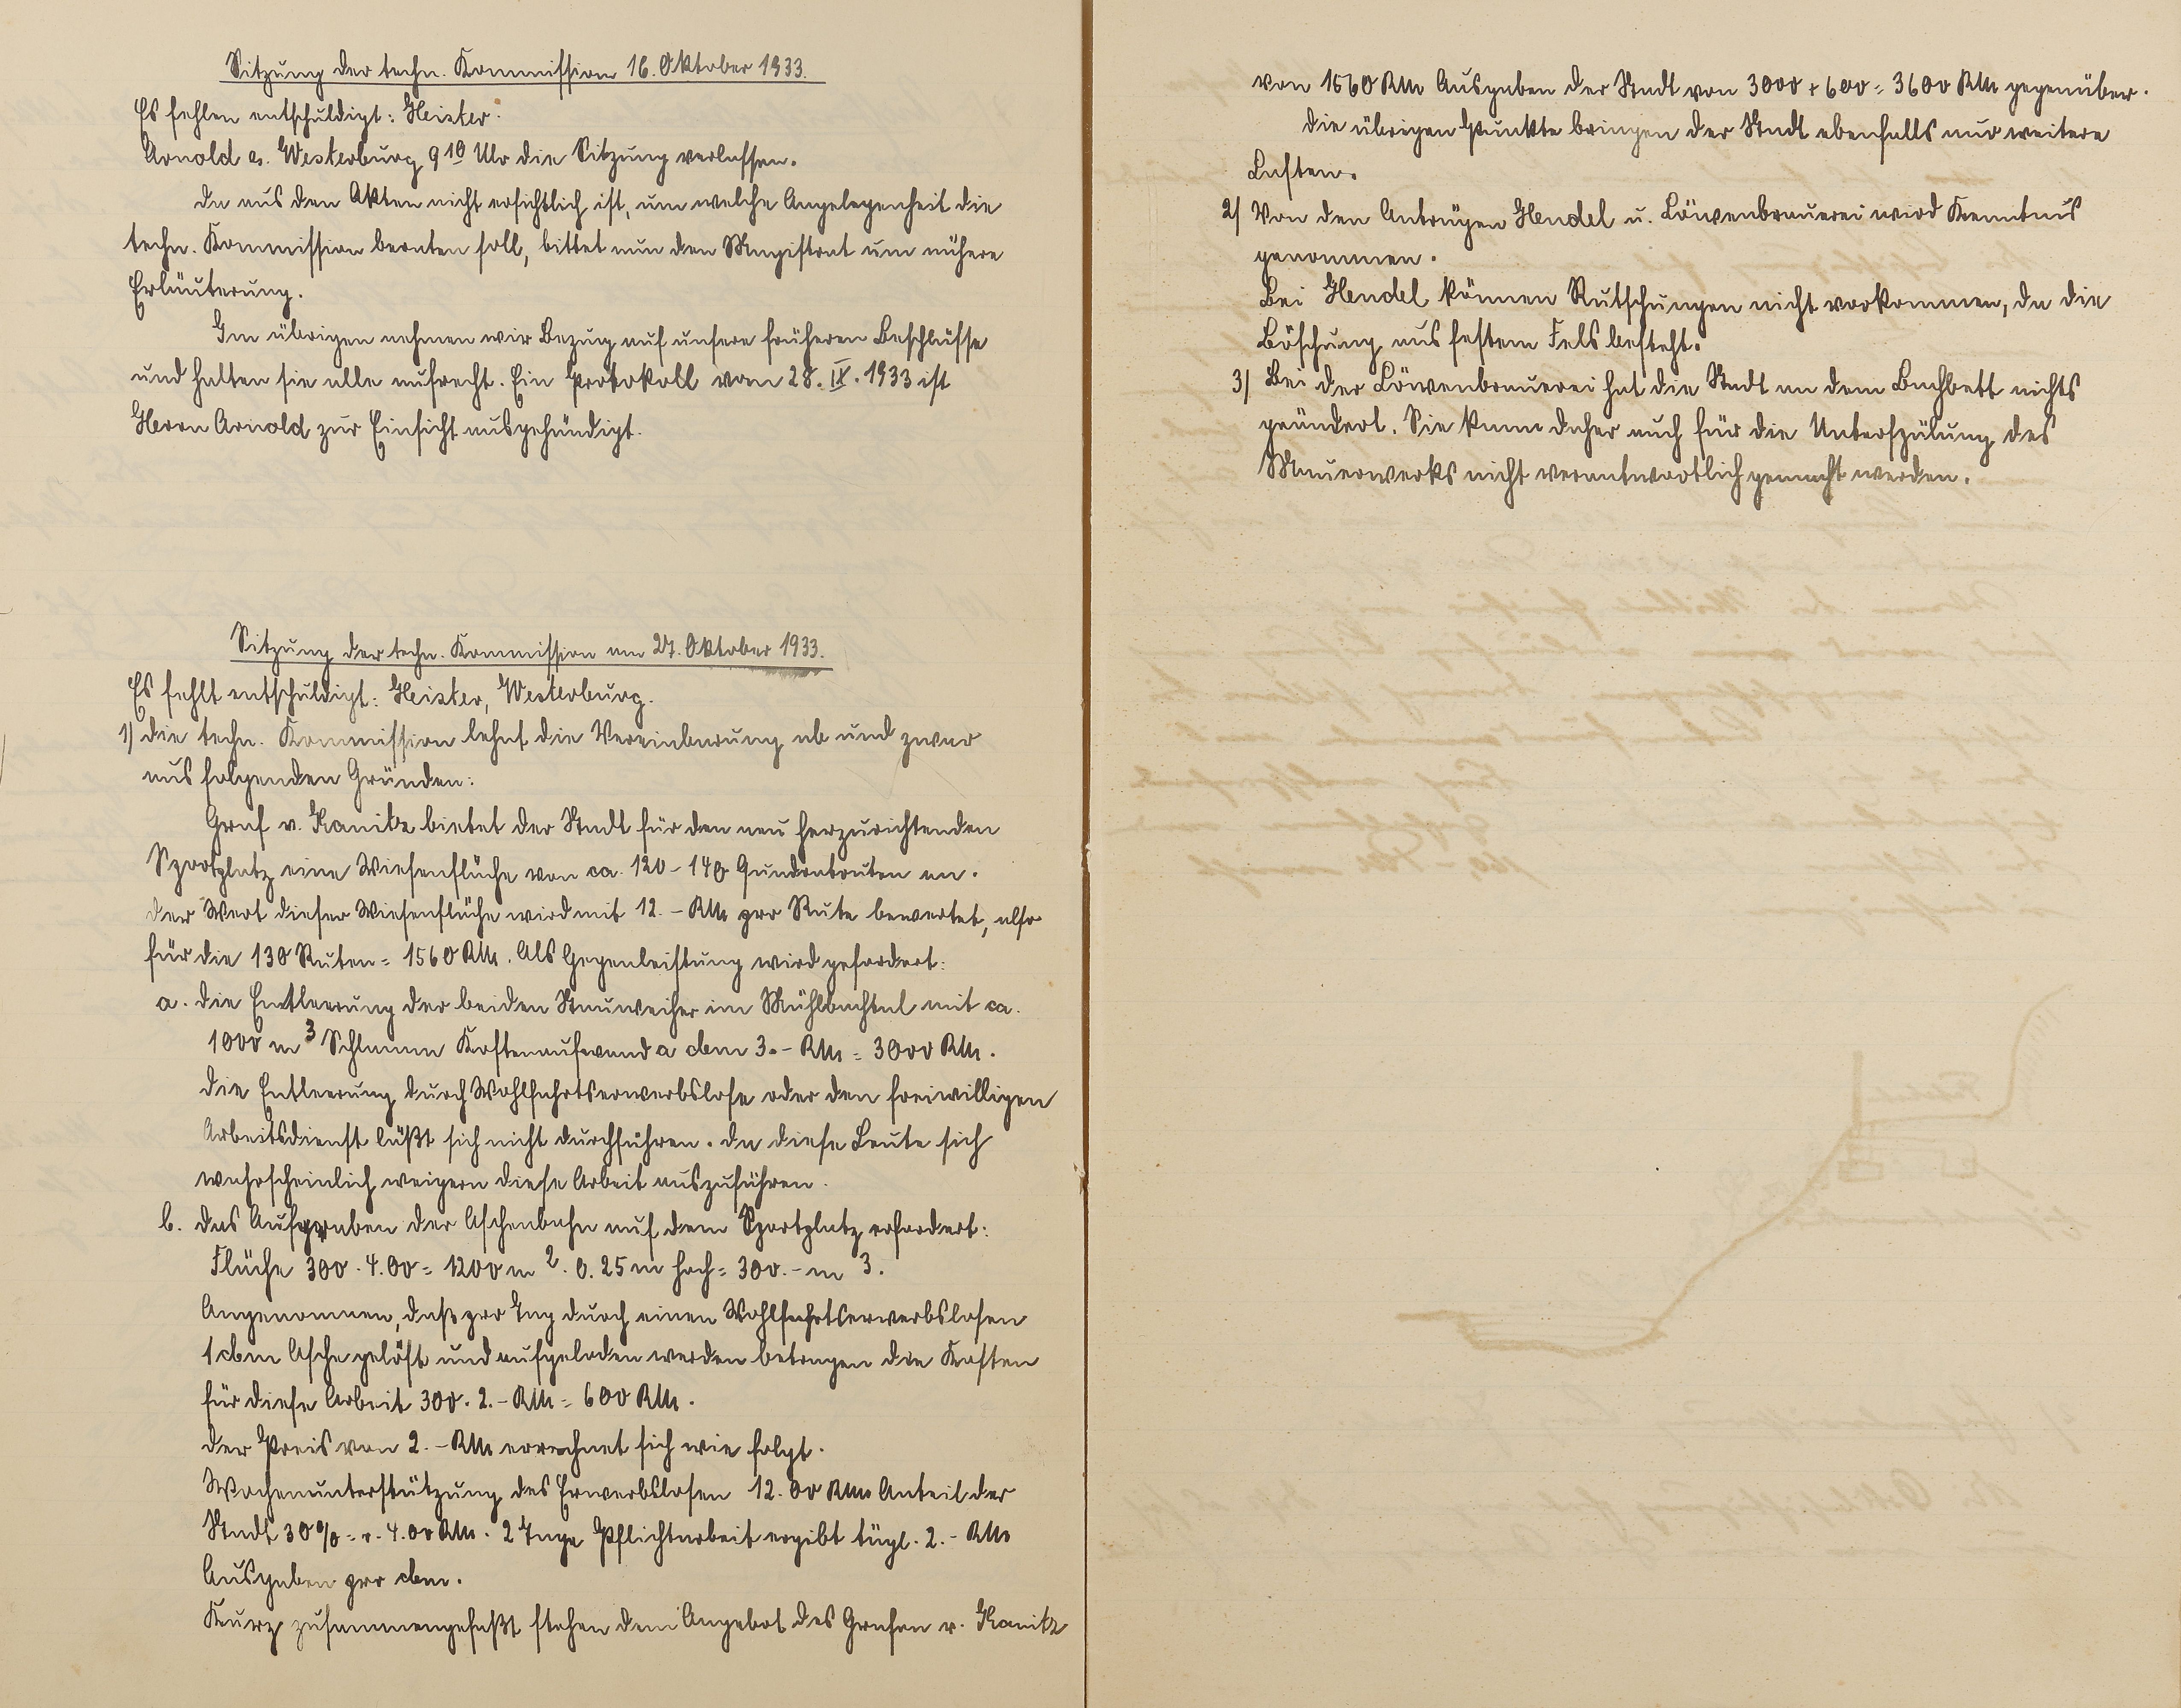 Sitzung der techn. Kommission 16. Oktober 1933.
Es fehlen entschuldigt: Heister.
Arnold u. Westerburg 9 10 Uhr die Sitzung verlassen.
Da aus den Akten nicht ersichtlich ist, um welche Angelegenheit die
techn. Kommission beraten soll, bittet nun den Magistrat um nähere
Erläuterung.
Im übrigen nehmen wir Bezug auf unsere früheren Beschlüsse
und halten sie alle aufrecht. Ein Protokoll vom 28. IX. 1933 ist
Herrn Arnold zur Einsicht ausgehändigt.
Sitzung der techn. Kommission am 27. Oktober 1933.
Es fehlt entschuldigt: Heister, Westerburg.
1) Die techn. Kommission lehnt die Vereinbarung ab und zwar
aus folgenden Gründen:
Graf v. Kanitz bietet der Stadt für den neu herzurichtenden
Sportplatz eine Wiesenfläche von ca. 120 - 140 Quadratruten an.
Der Wert dieser Wiesenfläche wird mit 12.- RM pro Rute bewertet, also
für die 130 Ruten = 1560 RM. Als Gegenleistung wird gefordert:
a. Die Entleerung der beiden Stauweiher im Mühlbachtal mit ca.
1000 m³ Schlamm Kostenaufwand a cbm 3.- RM = 3000 RM.
Die Entleerung durch Wohlfahrtserwerbslose oder den freiwilligen
Arbeitsdienst läßt sich nicht durchführen. Da diese Leute sich
wahrscheinlich weigern diese Arbeit auszuführen.
b. Das Aufgraben der Aschenbahn auf dem Sportplatz erfordert:
Fläche 300 . 4.00 = 1200 m². 0.25 m hoch = 300.- m³.
Angenommen, daß pro Tag durch einen Wohlfahrtserwerbslosen
1 cbm Asche gelöst und aufgeladen werden betragen die Kosten
für diese Arbeit 300 . 2.- RM = 600 RM.
Der Preis von 2.- RM errechnet sich wie folgt.
Wochenunterstützung des Erwerbslosen 12.00 RM Anteil der
Stadt 30% = r. 4.00 RM. 2 Tage Pflichtarbeit ergibt tägl. 2.- RM
Ausgaben pro cbm.
Kurz zusammengefaßt stehen dem Angebot des Grafen v. Kanitz
von 1560 RM Ausgaben der Stadt von 3000 + 600 = 3600 RM gegenüber.
Die übrigen Punkte bringen der Stadt ebenfalls nur weitere
Lasten.
2) Von den Anträgen Hendel u. Löwenbrauerei wird Kenntnis
genommen.
Bei Hendel können Rutschungen nicht vorkommen, da die
Böschung aus festem Fels besteht.
3) Bei der Löwenbrauerei hat die Stadt an dem Bachbett nichts
geändert. Sie kann daher auch für die Unterspülung des
Mauerwerks nicht verantwortlich gemacht werden.